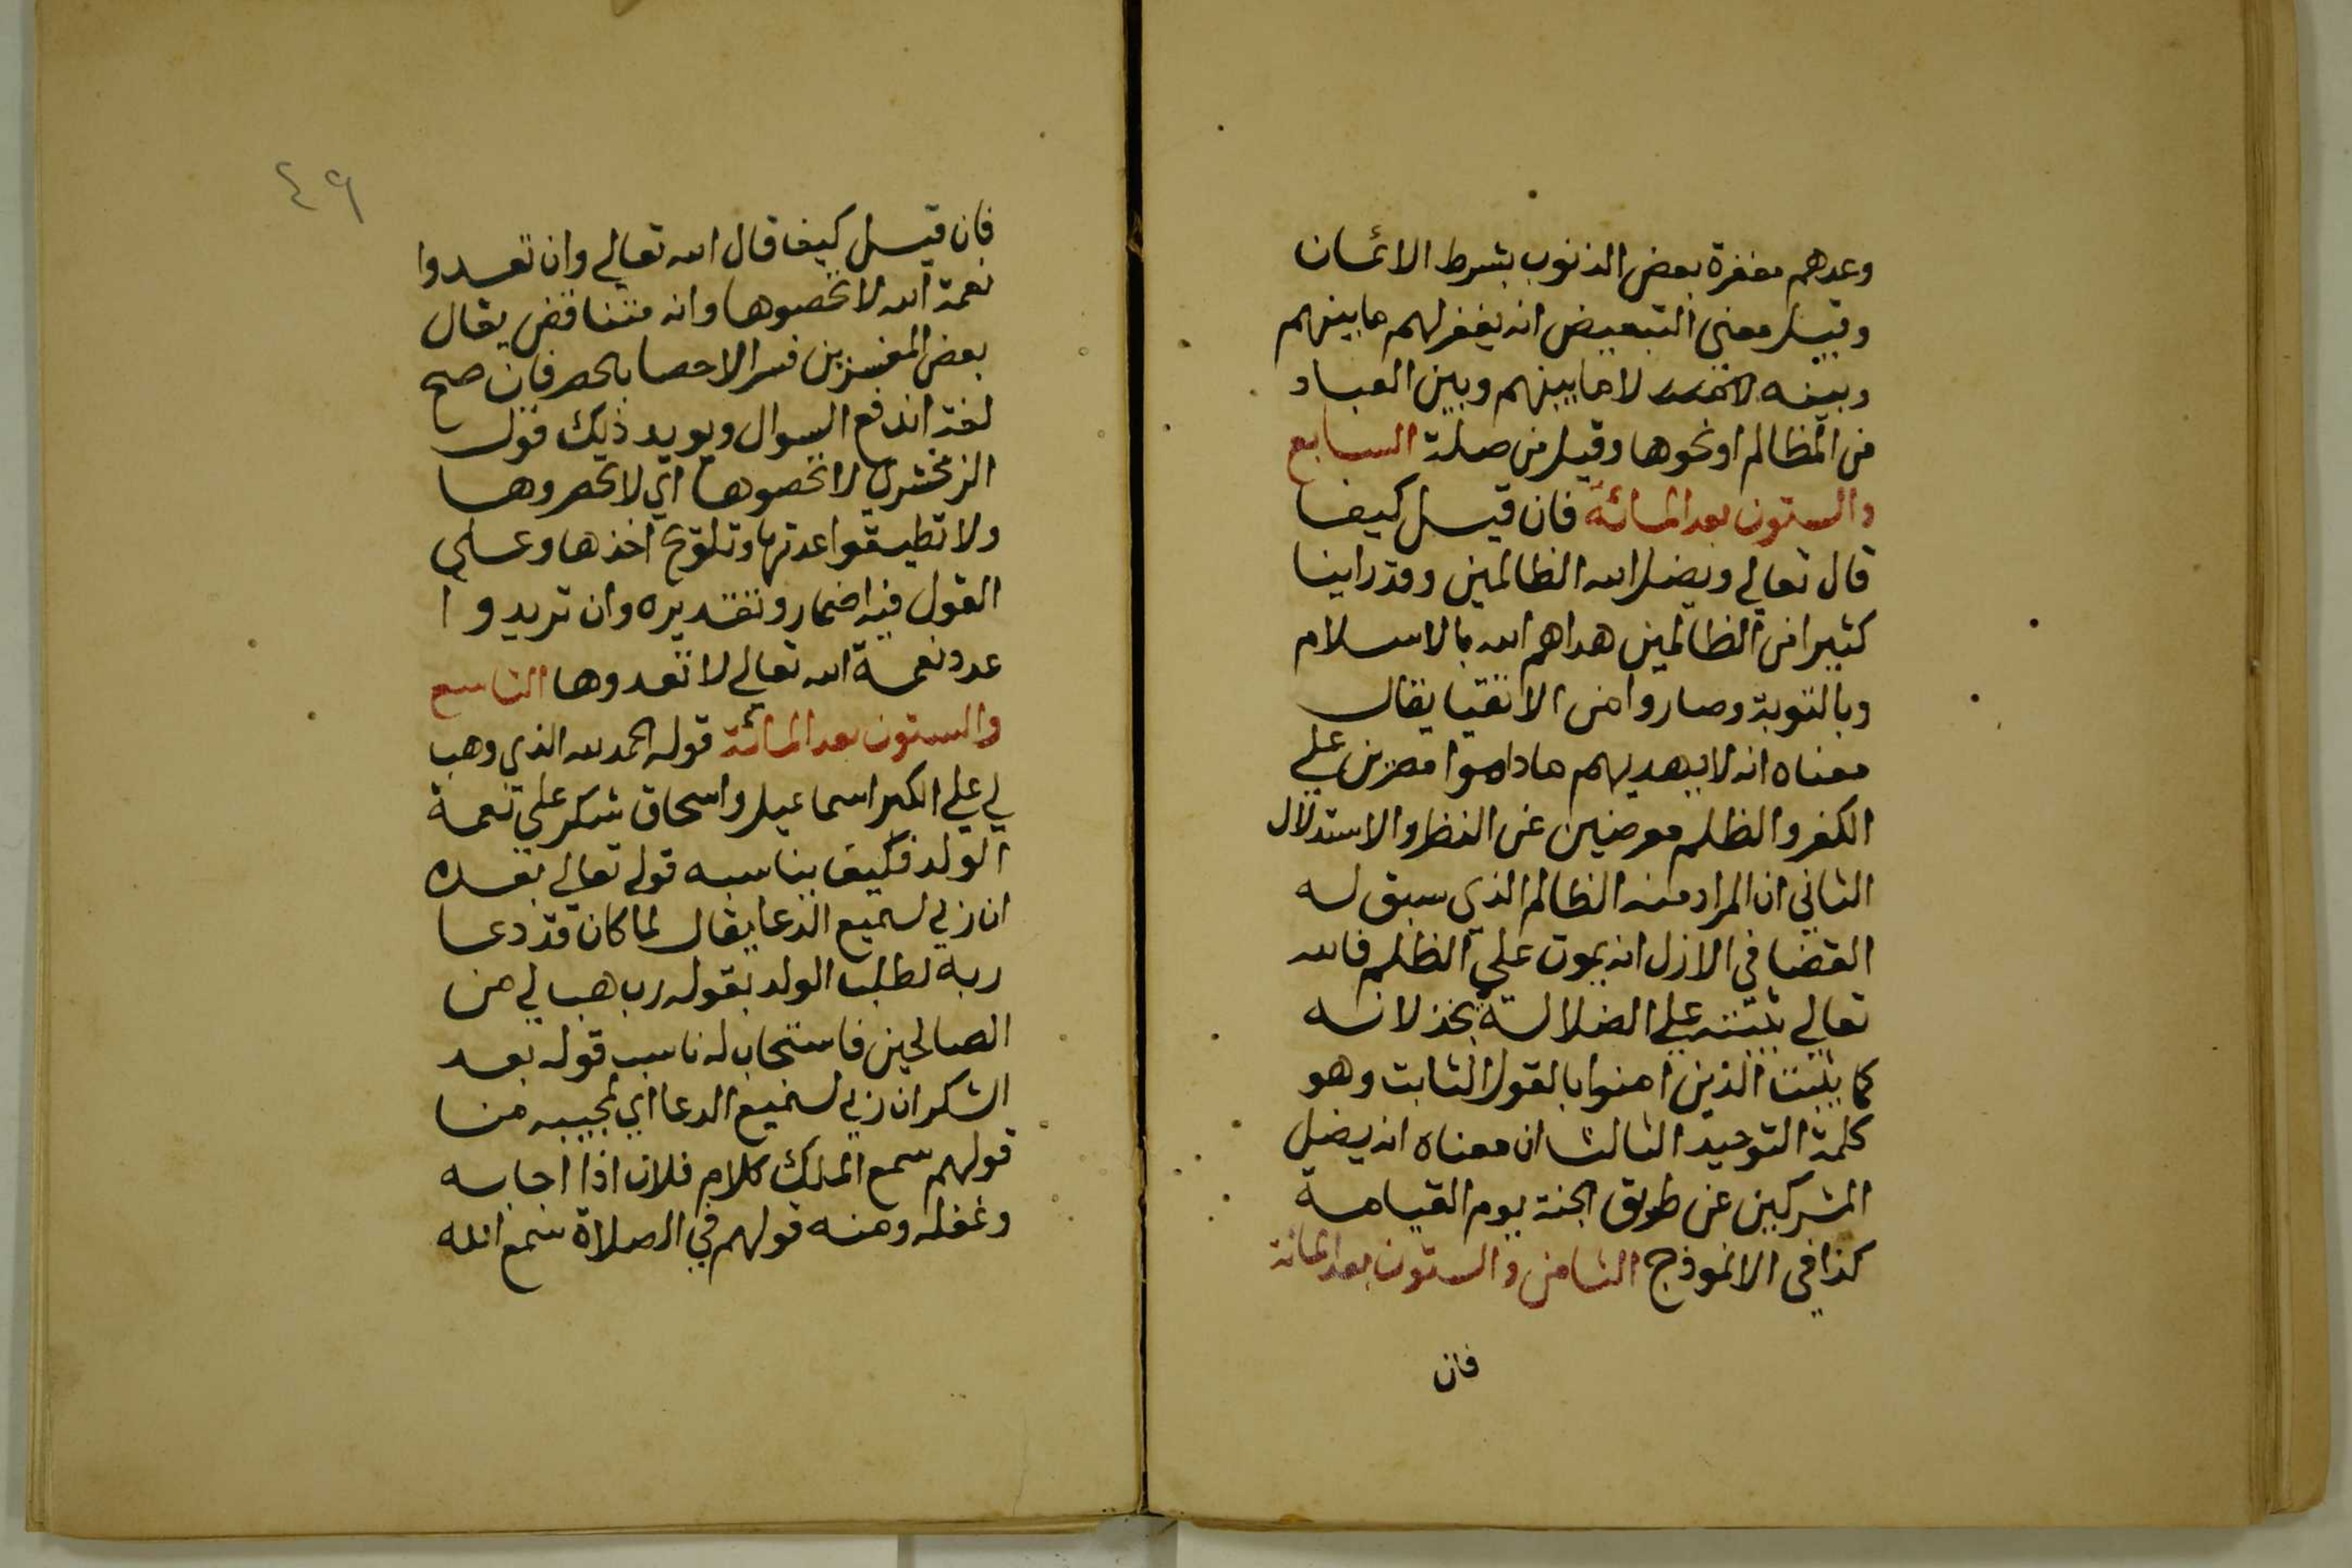 وعدهم مغفرة بعض الذنوب بشرط الائمان
وقيل معني التبعيض انه يغفر لهم ما بينهم
وبينه لا ما بينهم وبين العباد
من المظالم او نحوها وقيل من صلة السابع
والستون بعد المائة فان قيل كيف
قال تعالي ويضل الله الظالمين وقد راينا
كثيرا من الظالمين هداهم الله بالاسلام
وبالتوبة وصاروا من الاتقيا يقال
معناه انه لا يهديهم ما داموا مصرين علي
الكفر والظلم معرضين عن النظر والاستدلال
الثاني ان المراد منه الظالم الذي سبق له
القضا في الازل انه يموت علي الظلم فالله
تعالي يثبته علي الضلالة بخذلانه
كما يثبت الذين امنوا بالقول الثابت وهو
كلمة التوحيد الثالث ان معناه انه يضل
المشركين عن طريق الجنة يوم القيامة
كذا في الانموذج الثامن والستون بعد المائة
فان
٤٩
فان قيل كيف قال الله تعالي وان تعدوا
نعمة الله لا تحصوها وانه متناقض يقال
بعض المفسرين فسر الاحصا بالحصر فان صح
لغة اندفع السوال ويويد ذلك قول
الزمخشري لا تحصوها اي لا تحصروها
ولا تطيقوا عدتها وتلوغ اخذها وعلي
القول فيه اضمار وتقديره وان تريدوا
عدد نعمة الله تعالي لا تعدوها التاسع
والستون بعد المائة قوله الحمد لله الذي وهب
لي علي الكبر اسماعيل واسحاق شكر علي نعمة
الولد فكيف يناسبه قوله تعالي بعده
ان ربي لسميع الدعا يقال لما كان قد دعا
ربه لطلب الولد بقوله رب هب لي من
الصالحين فاستجاب له ناسب قوله بعد
الشكر ان ربي لسميع الدعا اي لمجيبه من
قولهم سمع الملك كلام فلان اذا اجابه
ومنه قولهم في الصلاة سمع الله